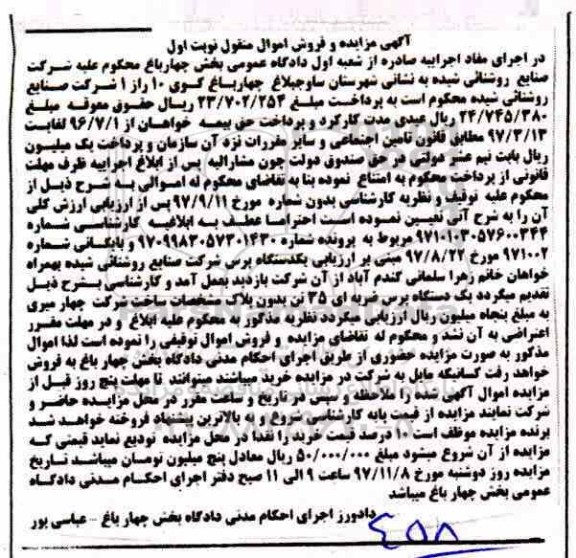 آگهی مزایده و فروش اموال منقول نوبت اول
در اجرای مفاد اجراییه صادره از شعبه اول دادگاه عمومی بخش چهارباغ محکوم علیه شرکت
صنایع روشنائی شیده به نشانی شهرستان ساوجبلاغ چهارباغ کوی ۱۰ راز ۱ شرکت صنایع
روشنائی شیده محکوم است به پرداخت مبلغ ۲۳/۷۰۲/۲۵۳ ریال حقوق معوقه مبلغ
۲۴/۷۴۵/۳۸۰ ریال عیدی مدت کارکرد و پرداخت حق بیمه خواهان از ۹۶/۷/۱ لغایت
۹۷/۳/۱۳ مطابق قانون تامین اجتماعی و سایر مقررات نزد آن سازمان و پرداخت یک میلیون
ریال بابت نیم عشر دولتی در حق صندوق دولت چون مشارالیه پس از ابلاغ اجراییه ظرف مهلت
قانونی از پرداخت محکوم به امتناع نموده بنا به تقاضای محکوم له اموالی به شرح ذیل از
محکوم علیه توقیف و نظریه کارشناسی بدون شماره مورخ ۹۷/۹/۱۱ پس از ارزیابی ارزش کلی
آن را به شرح آتی تعیین نموده است احتراما عطف به ابلاغیه کارشناسی شماره
۹۷۱۰۱۰۳۰۵۷۶۰۰۳۴۴ مربوط به پرونده شماره ۹۷۰۹۹۸۳۰۵۷۳۰۱۴۳۰ و بایگانی شماره
۹۷۱۰۰۲ مورخ ۹۷/۸/۲۲ مبنی بر ارزیابی یکدستگاه پرس شرکت صنایع روشنائی شیده بهمراه
خواهان خانم زهرا سلمانی گندم آباد از آن شرکت بازدید بعمل آمد و کارشناسی بشرح ذیل
تقدیم میگردد یک دستگاه پرس ضربه ای ۳۵ تن بدون پلاک مشخصات ساخت شرکت چهار میری
به مبلغ پنجاه میلیون ریال ارزیابی میگردد نظریه مذکور به محکوم علیه ابلاغ و در مهلت مقرر
اعتراضی به آن نشد و محکوم له تقاضای مزایده و فروش اموال توقیفی را نموده است لذا اموال
مذکور به صورت مزایده حضوری از طریق اجرای احکام مدنی دادگاه بخش چهار باغ به فروش
خواهد رفت کسانیکه مایل به شرکت در مزایده خرید میباشند میتوانند تا مهلت پنج روز قبل از
مزایده اموال آگهی شده را ملاحظه و سپس در تاریخ و ساعت مقرر در محل مزایده حاضر و
شرکت نمایند مزایده از قیمت پایه کارشناسی شروع و به بالاترین پیشنهاد فروخته خواهد شد
برنده مزایده موظف است ۱۰ درصد قیمت خرید را نقدا در محل مزایده تودیع نماید قیمتی که
مزایده از آن شروع میشود مبلغ ۵۰/۰۰۰/۰۰۰ ریال معادل پنج میلیون تومان میباشد تاریخ
مزایده روز دوشنبه مورخ ۹۷/۱۱/۸ ساعت ۹ الی ۱۱ صبح دفتر اجرای احکام مدنی دادگاه
عمومی بخش چهار باغ میباشد
دادورز اجرای احکام مدنی دادگاه بخش چهار باغ - عباسی پور
۴۵۸